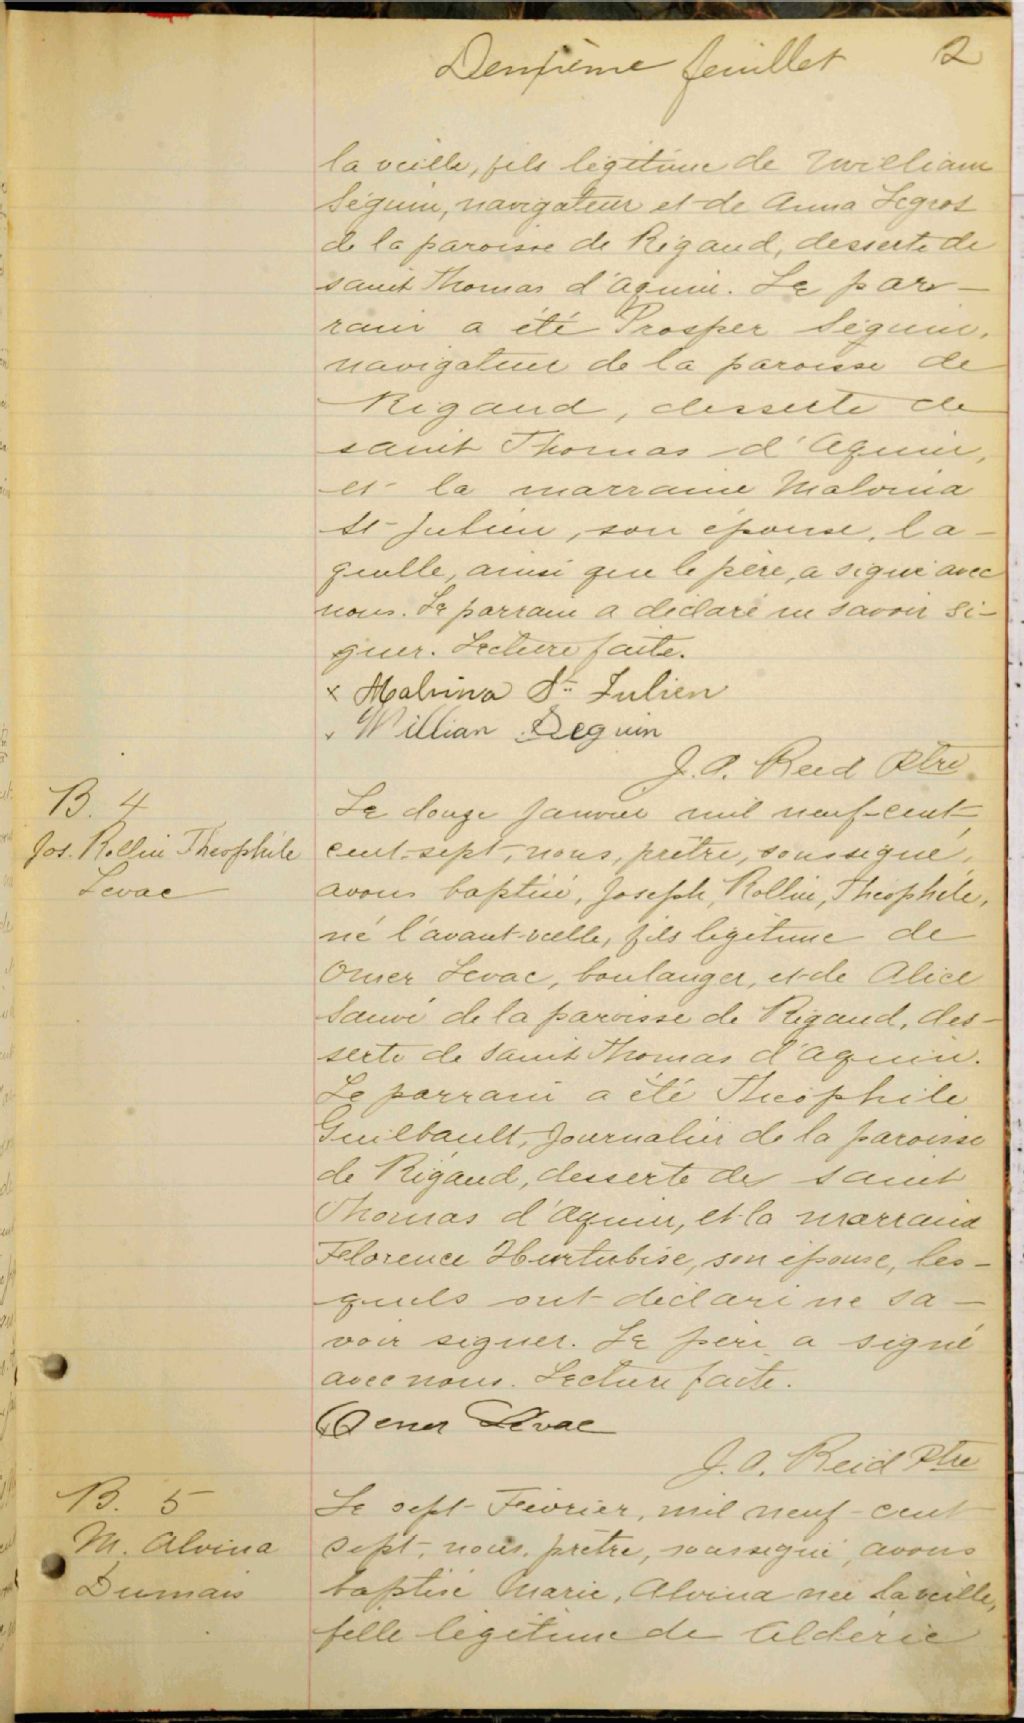 Deuxième feuillet 2
la veille, fils légitime de William
Séguin, navigateur et de Anna Legros
de la paroisse de Rigaud, desserte de
saint Thomas d'Aquin. Le par-
rain a été Prosper Séguin,
navigateur de la paroisse de
Rigaud, desserte de
saint Thomas d'Aquin,
et la marraine Malvina
St-Julien, son épouse, la-
quelle, ainsi que le père, a signé avec
nous. Le parrain a déclaré ne savoir si-
gner. Lecture faite.
x Malvina St Julien
x Willian Seguin
J. A. Reid Ptre
B. 4
Jos. Rollin Théophile
Levac
Le douze Janvier mil neuf-cent
cent-sept, nous, prêtre, soussigné,
avons baptisé, Joseph, Rollin, Théophile,
né l'avant-veille, fils légitime de
Omer Levac, boulanger, et de Alice
Sauvé de la paroisse de Rigaud, des-
serte de saint Thomas d'Aquin.
Le parrain a été Théophile
Guilbault, Journalier de la paroisse
de Rigaud, desserte de saint
Thomas d'Aquin, et la marraine
Florence Hurtubise, son épouse, les-
quels ont déclaré ne sa-
voir signer. Le père a signé
avec nous. Lecture faite.
Omer Levac
J. A. Reid Ptre
B. 5
M. Alvina
Dumais
Le sept Février, mil neuf-cent
sept, nous, prêtre, soussigné, avons
baptisé Marie, Alvina née la veille,
fille légitime de Aldéric